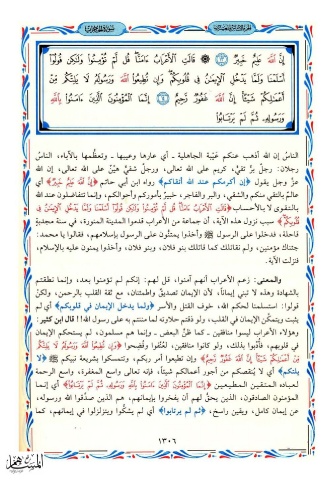 إِنَّ اللَّهَ عَلِيمٌ خَبِيرٌ ﴿١٣﴾ ۞ قَالَتِ الْأَعْرَابُ ءَامَنَّا قُل لَّمْ تُؤْمِنُوا وَلَٰكِن قُولُوا
أَسْلَمْنَا وَلَمَّا يَدْخُلِ الْإِيمَٰنُ فِي قُلُوبِكُمْ وَإِن تُطِيعُوا اللَّهَ وَرَسُولَهُ لَا يَلِتْكُم مِّنْ
أَعْمَٰلِكُمْ شَيْئًا إِنَّ اللَّهَ غَفُورٌ رَّحِيمٌ ﴿١٤﴾ إِنَّمَا الْمُؤْمِنُونَ الَّذِينَ ءَامَنُوا بِاللَّهِ
وَرَسُولِهِ ثُمَّ لَمْ يَرْتَابُوا
الناسُ إن الله أذهب عنكم عُبِّيَّة الجاهلية ـ أي عارها وعيبها ـ وتعظُّمها بالآباء، الناسُ
رجلان: رجلٌ برٌّ تقيٌّ، كريم على الله تعالى، ورجلٌ شقيٌّ هيِّنٌ على الله تعالى، إن الله
عزَّ وجل يقول ﴿إن أكرمكم عند الله أتقاكم﴾ رواه ابن أبي حاتم ﴿إِنَّ اللَّهَ عَلِيمٌ خَبِيرٌ﴾ أي
عالمٌ بالتقي منكم والشقي، والبر والفاجر، خبيرٌ بأموركم وأحوالكم، وإنما تتفاضلون عند الله
بالتقوى لا بالأحساب ﴿قَالَتِ الْأَعْرَابُ ءَامَنَّا قُل لَّمْ تُؤْمِنُوا وَلَٰكِن قُولُوا أَسْلَمْنَا وَلَمَّا يَدْخُلِ الْإِيمَٰنُ فِي
قُلُوبِكُمْ﴾ سبب نزول هذه الآية، أن جماعة من الأعراب قدموا المدينة المنورة، في سنة مجدبةٍ
قاحلة، فدخلوا على الرسول ﷺ وأخذوا يمتنُّون على الرسول بإسلامهم، فقالوا يا محمد:
جئناك مؤمنين، ولم نقاتلك كما قاتلك بنو فلان، وبنو فلان، وأخذوا يمنون عليه بالإسلام،
فنزلت الآية.
والمعنى: زعم الأعراب أنهم آمنوا، قل لهم: إنكم لم تؤمنوا بعد، وإنما نطقتم
بالشهادة وهذه لا تبني إيماناً، لأن الإيمان تصديقٌ واطمئنان، مع ثقة القلب بالرحمن، ولكن
قولوا: استسلمنا لحكم الله، خوف القتل والأسر ﴿ولما يدخل الإيمان في قلوبكم﴾ أي لم
يثبت ويتمكَّن الإيمان في القلب، ولو ذقتم حلاوته لما مننتم به على رسول الله!! قال ابن كثير:
وهؤلاء الأعراب ليسوا منافقين ـ كما ظنَّ البعض ـ وإنما هم مسلمون، لم يستحكم الإيمان
في قلوبهم، فأُدِّبوا بذلك، ولو كانوا منافقين، لعُنِّفوا وفُضِحوا ﴿وَإِن تُطِيعُوا اللَّهَ وَرَسُولَهُ لَا يَلِتْكُم
مِّنْ أَعْمَٰلِكُمْ شَيْئًا إِنَّ اللَّهَ غَفُورٌ رَّحِيمٌ﴾ أي وإن تطيعوا أمر ربكم، وتتمسكوا بشريعة نبيكم ﷺ ﴿لا
يلتكم﴾ أي لا يُنقصكم من أجور أعمالكم شيئاً، فإنه تعالى واسع المغفرة، واسع الرحمة
لعباده المتقين المطيعين ﴿إِنَّمَا الْمُؤْمِنُونَ الَّذِينَ ءَامَنُوا بِاللَّهِ وَرَسُولِهِ ثُمَّ لَمْ يَرْتَابُوا﴾ أي إنما
المؤمنون الصادقون، الذين يحقُّ لهم أن يفخروا بإيمانهم، هم الذين صدَّقوا الله ورسوله،
عن إيمان كامل، ويقين راسخ، ﴿ثم لم يرتابوا﴾ أي لم يشكُّوا ويتزلزلوا في إيمانهم، كما
١٣٠٦